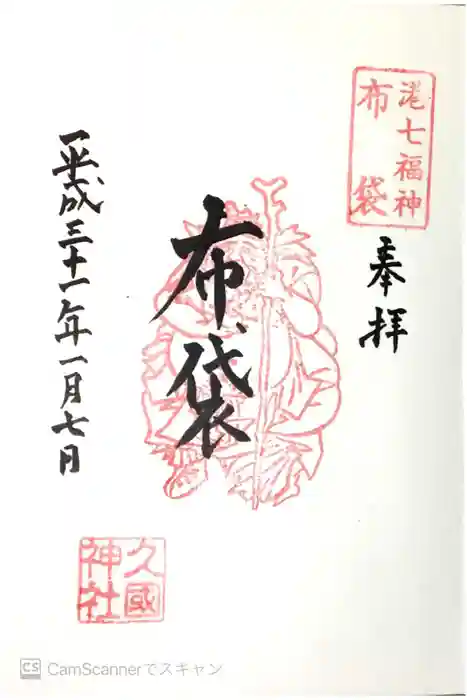 港七福神
布袋
奉拝
布袋
平成三十一年一月七日
久國
神社
CS CamScannerでスキャン